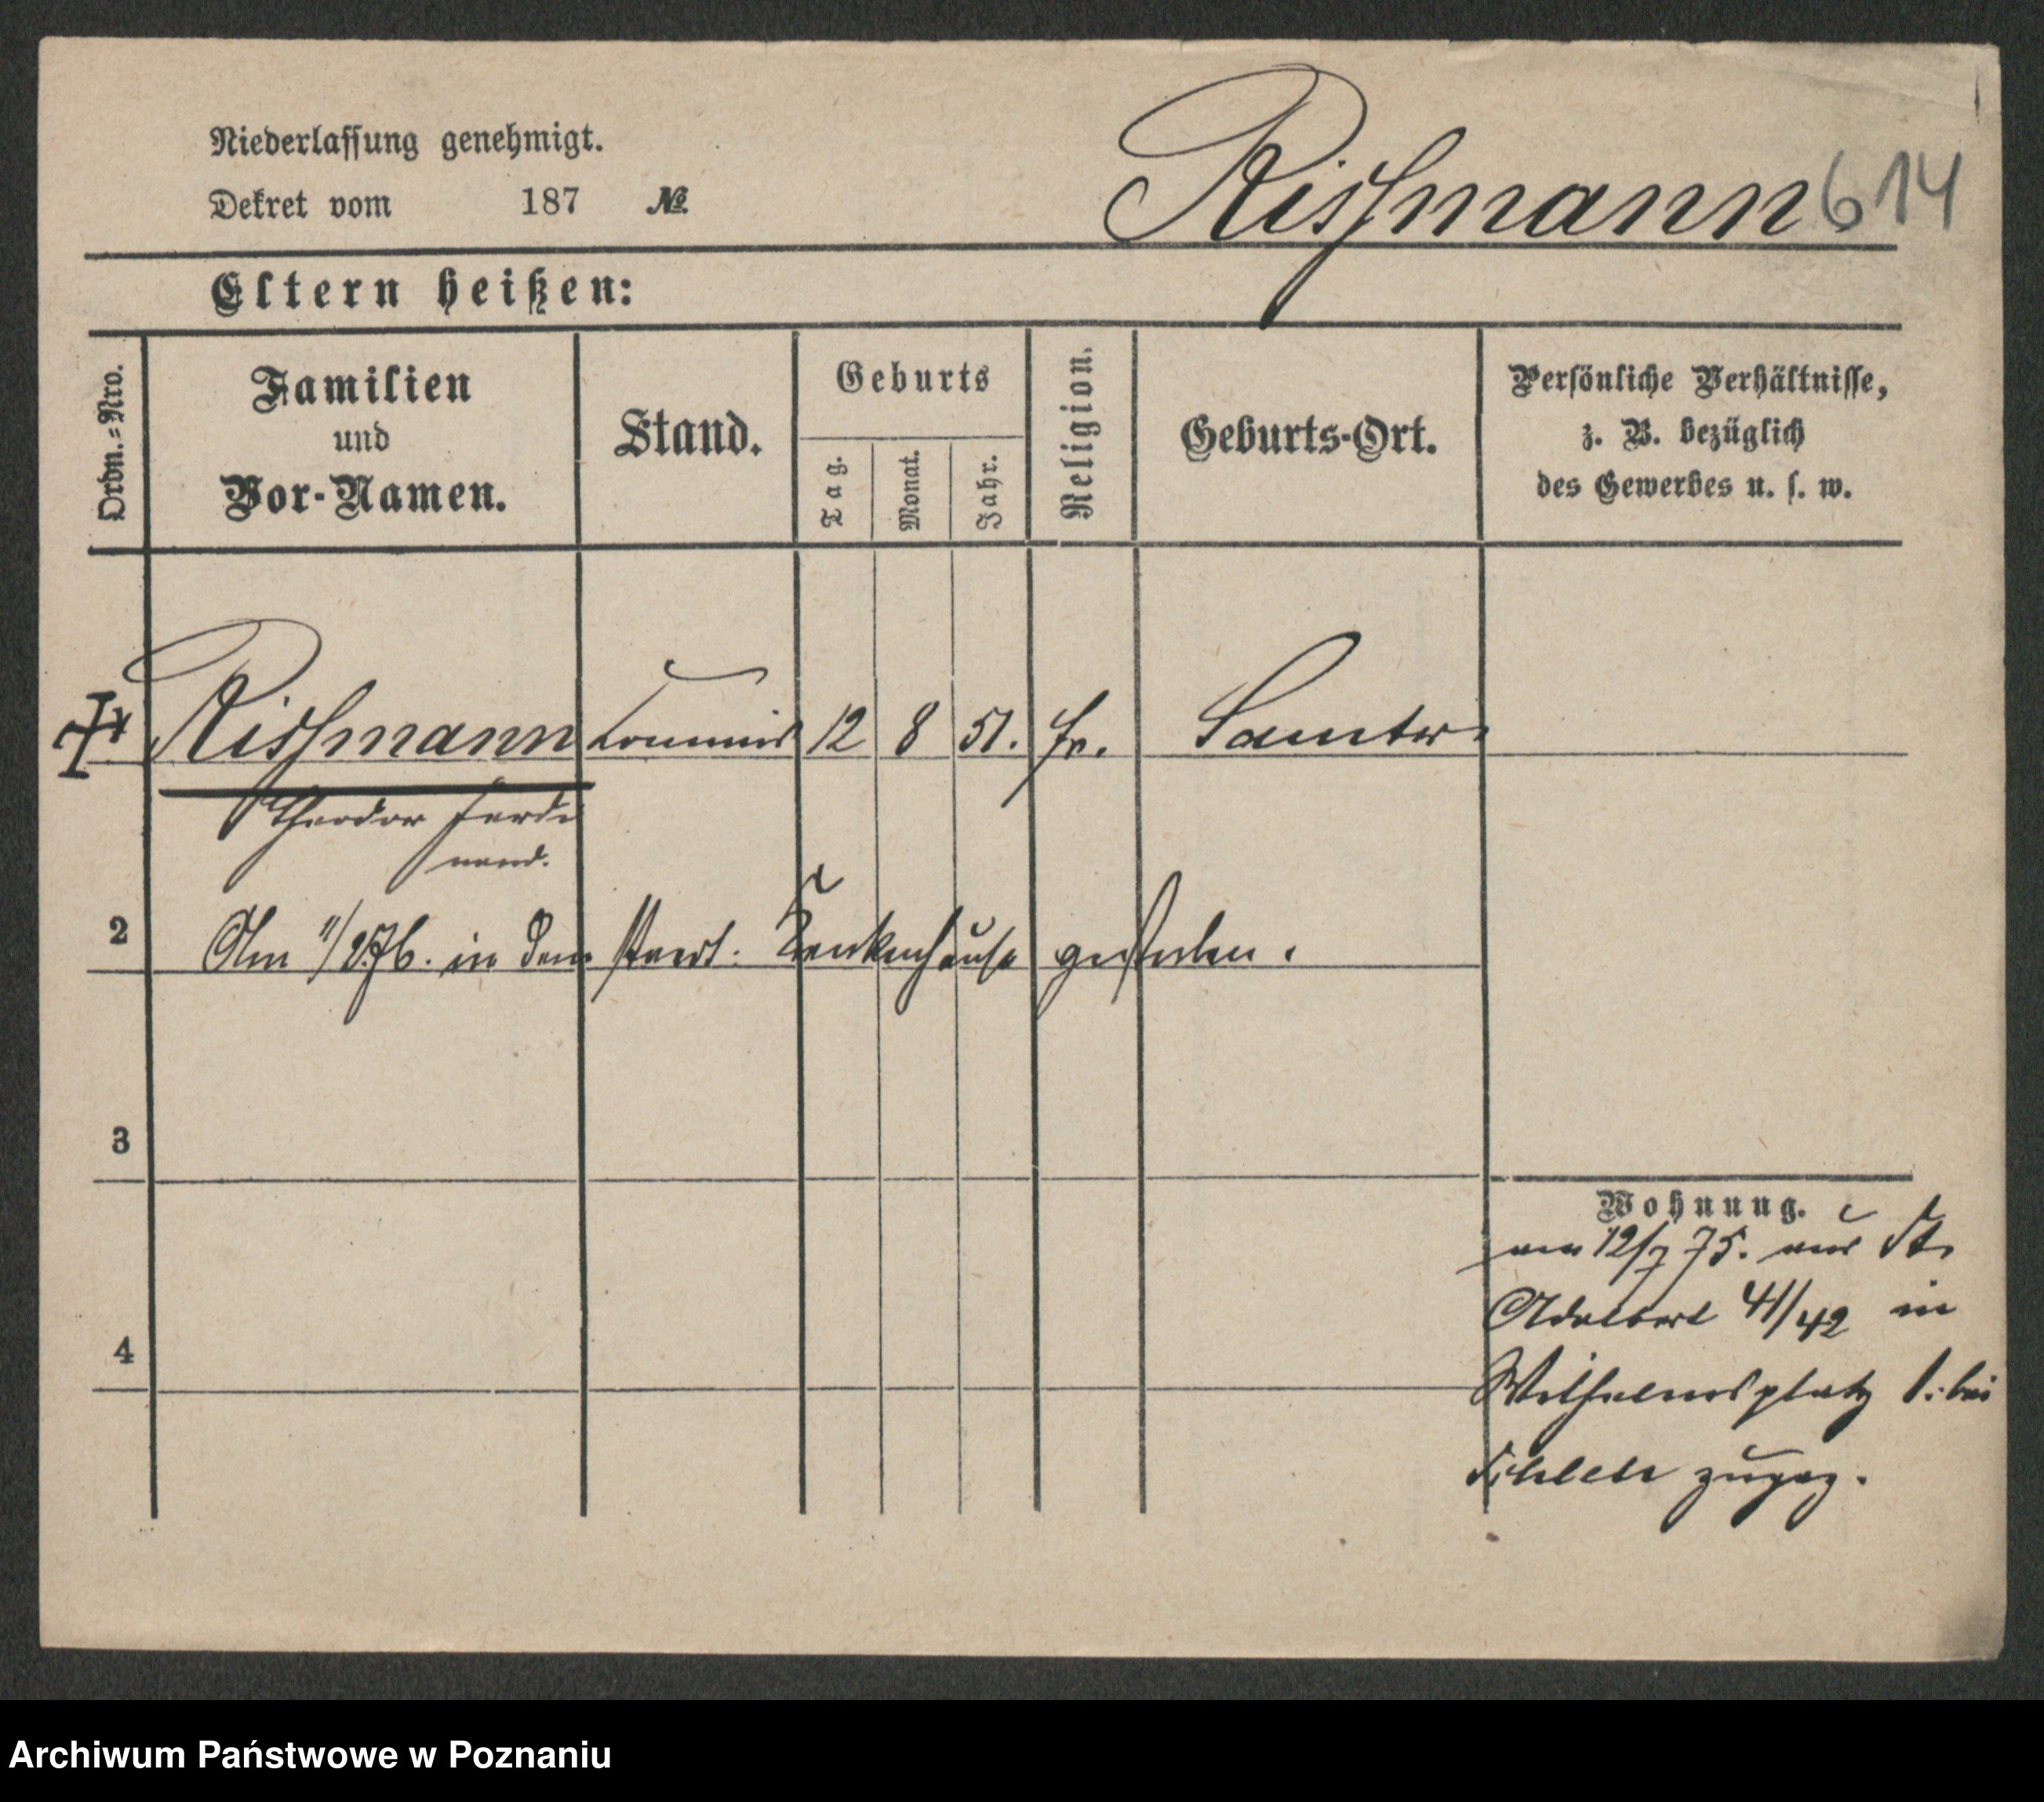 Niederlassung genehmigt.
Dekret vom 187 №
Rissmann 614
Eltern heißen:
Ordn.=Nro.
Familien
und
Vor-Namen.
Stand.
Geburts
Tag.
Monat.
Jahr.
Religion.
Geburts-Ort.
Persönliche Verhältnisse,
z. B. bezüglich
des Gewerbes u. s. w.
Rissmann Commis 12 8 51. Samter.
Theodor Ferdi
nand.
2 Am in dem städt. Krankenhause gestorben.
3
Wohnung.
am 12/7 75. aus St.
Adalbert 41/42 in
4
Wilhelmsplatz 1. bei
zugez.
Archiwum Państwowe w Poznaniu